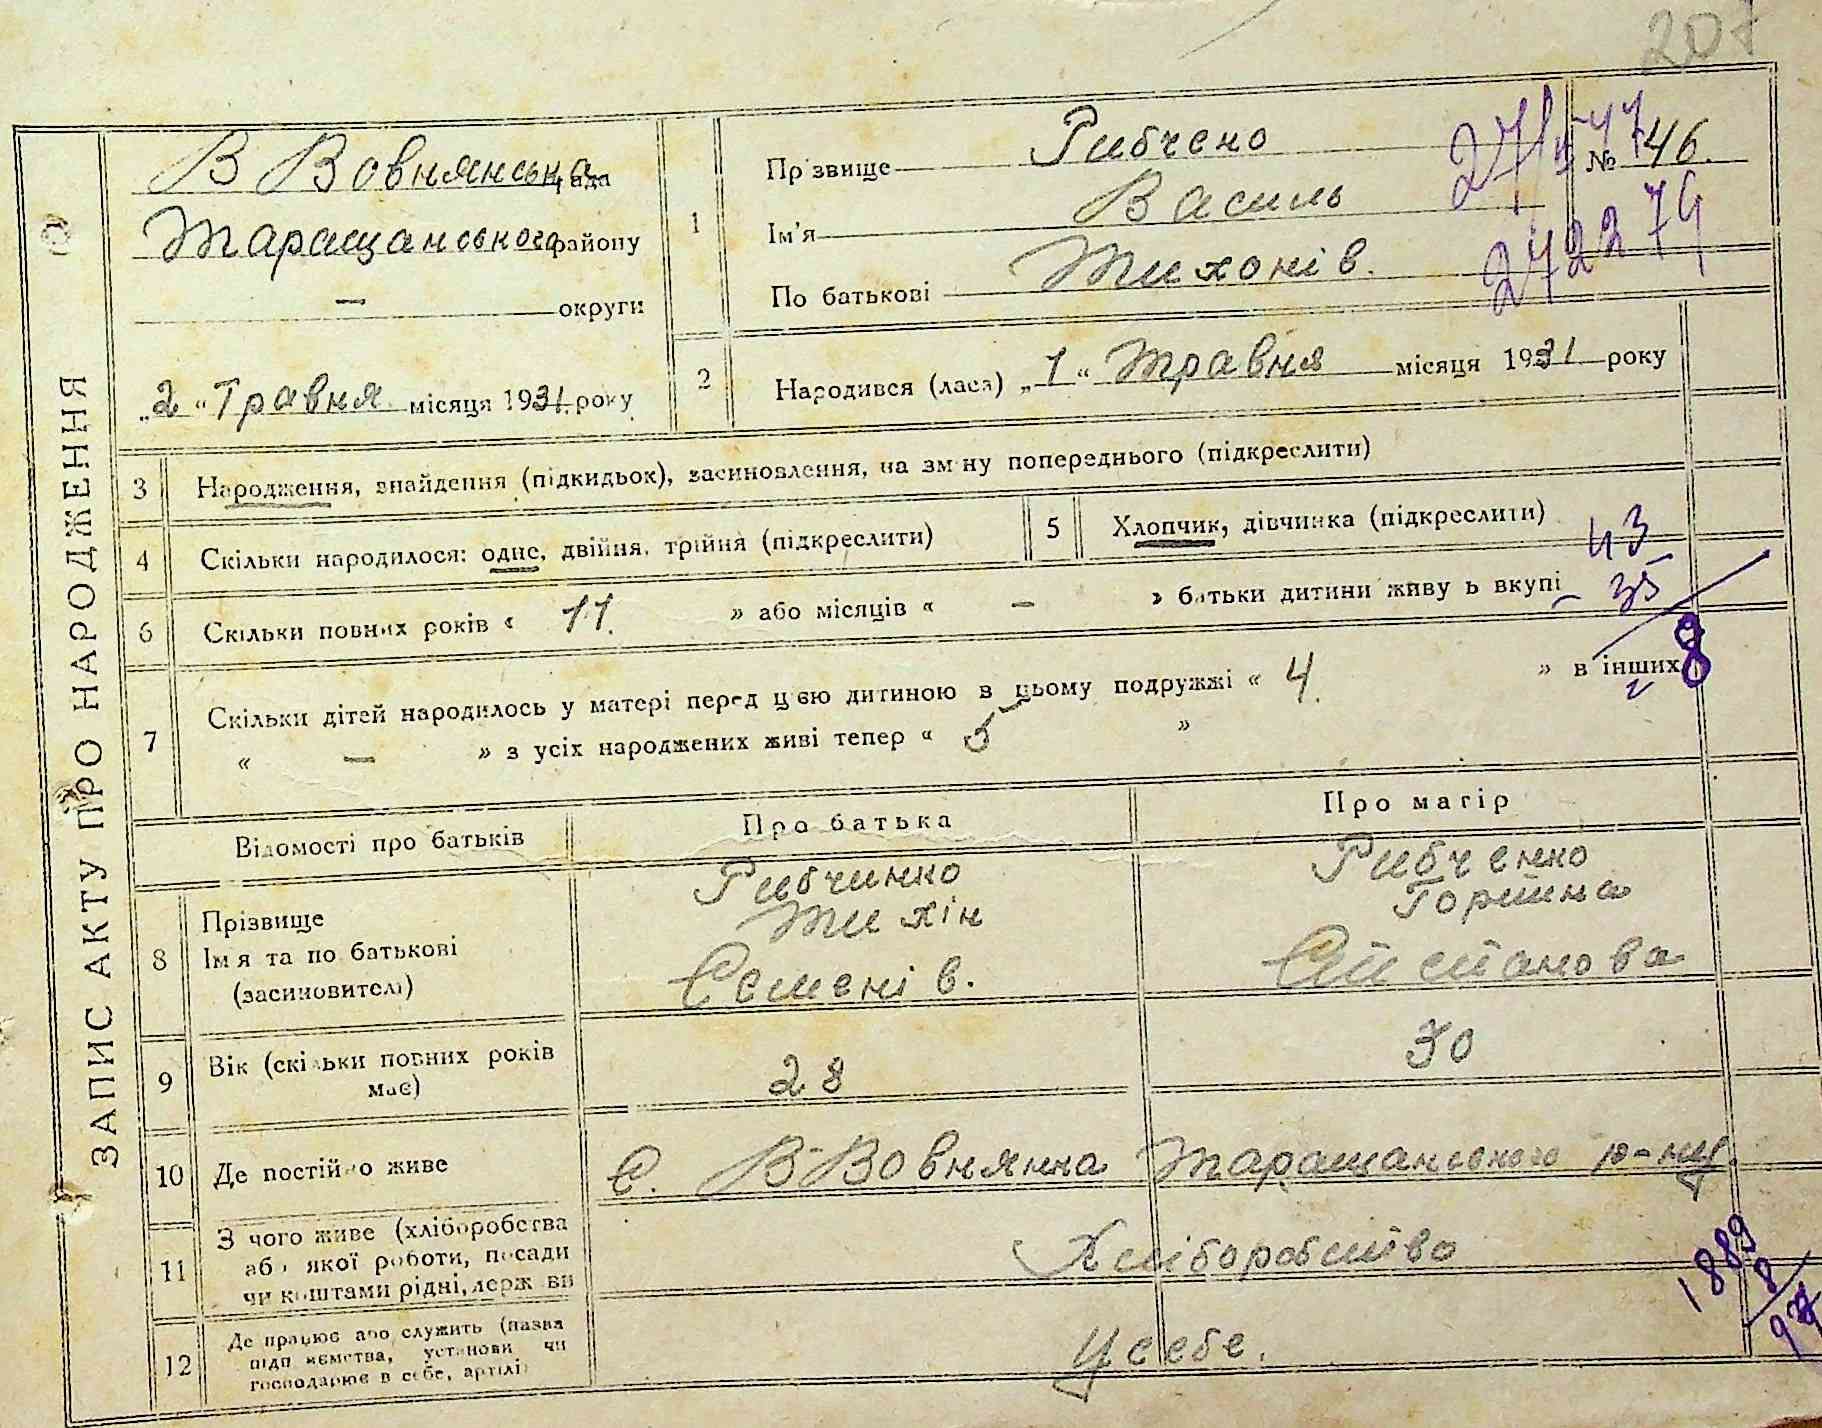 207
ЗАПИС АКТУ ПРО НАРОДЖЕННЯ
В Вовнянська рада
Таращанського району
— округи
„2“ Травня місяця 1931 року
1
Прізвище Рибчено
Ім'я Василь
По батькові Тихонів.
№ 46.
272279
2
Народився (лася) „1“ Травня місяця 1931 року
3 Народження, знайдення (підкидьок), засиновлення, на зміну попереднього (підкреслити)
4 Скільки народилося: одне, двійня, трійня (підкреслити)
5 Хлопчик, дівчинка (підкреслити)
43
35
8
6 Скільки повних років « 11. » або місяців « — » батьки дитини живуть вкупі
7 Скільки дітей народилось у матері перед цією дитиною в цьому подружжі « 4. » в інших
« — » з усіх народжених живі тепер « 5 »
Відомості про батьків Про батька Про матір
8 Прізвище
Ім'я та по батькові
(засиновителі)
Рибчинко
Тихін
Семенів.
Рибченко
Горпина
Степанова
9 Вік (скільки повних років має) 28 30
10 Де постійно живе С. В-Вовнянка Таращанського р-ну.
11 З чого живе (хліборобства
або якої роботи, посади
чи коштами рідні, держави
Хліборобство
1889
8
12 Де працює або служить (назва
підприємства, установи чи
господарює в себе, артілі)
У себе.